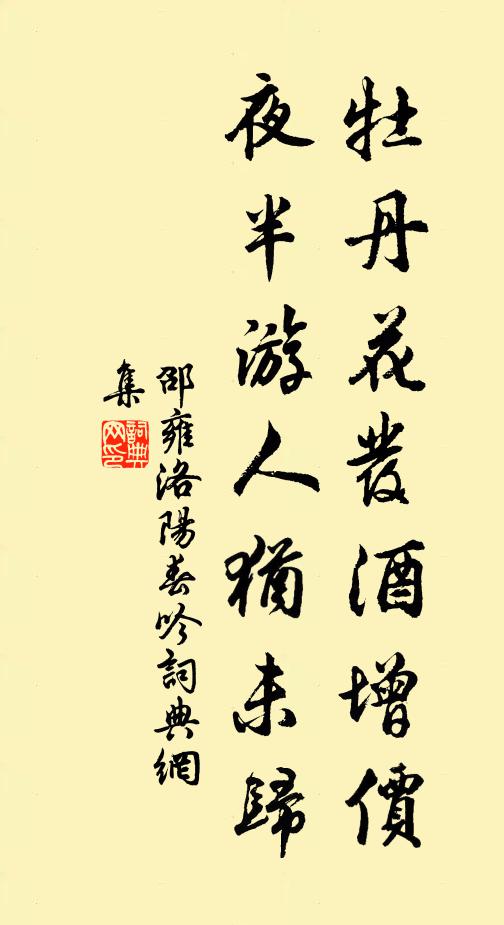 牡丹花發酒增價
夜半游人猶未歸
邵雍洛陽春吟詞典網
集
詞典
网印